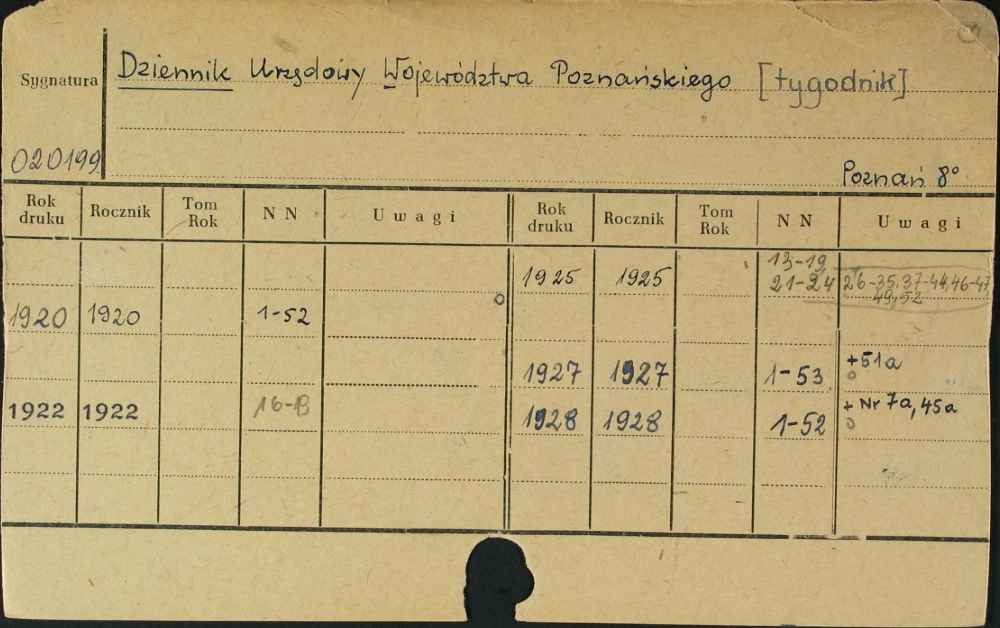 Sygnatura
020199
Dziennik Urzędowy Województwa Poznańskiego [tygodnik]
Poznań 8°
Rok druku Rocznik Tom Rok NN Uwagi Rok druku Rocznik Tom Rok NN Uwagi
13-19
1925 1925 21-24 26-35, 37-44, 46-47
49, 52
1920 1920 1-52
1927 1927 1-53 +51a
1922 1922
+ Nr 7a, 45a
1928 1928 1-52